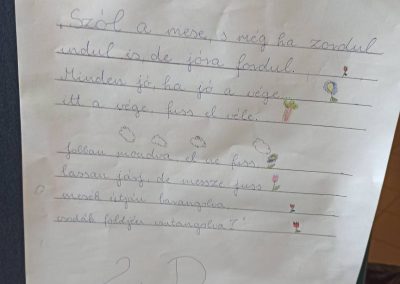 „Szól a mese, s még ha zordul
indul is, de jóra fordul.
Minden jó, ha jó a vége,
itt a vége, fuss el véle.
jobban mondva el ne fuss,
lassan járj, de messze juss
mesék útján barangolva
csodák földjén
2. D